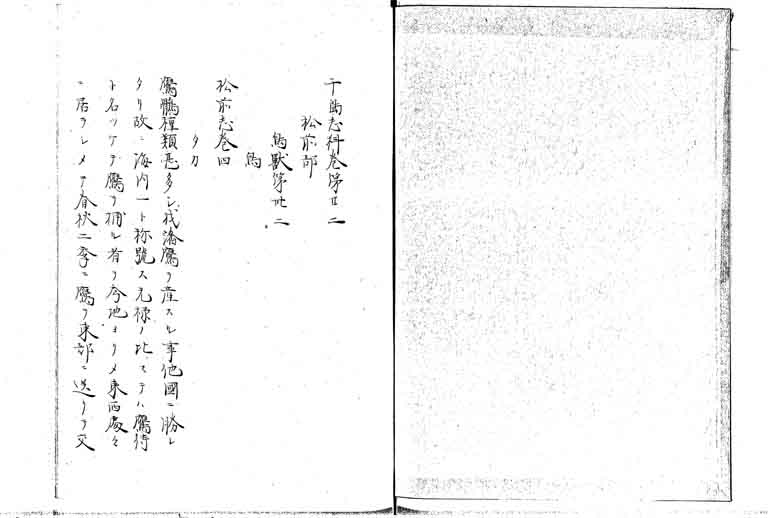 千島志料巻第廿二
松前部
鳥獣第廿二
鳥
松前志巻四
タカ
鷹鶻種類甚多シ我藩鷹ヲ産スル事他國ニ勝レ
タリ故ニ海内一ト称號ス元禄ノ比マテハ鷹待
ト名ツケテ鷹ヲ捕ル者ヲ今地ヨリ〆東西處々
ニ居ラシメテ春秋二季ニ鷹ヲ東部ニ送リテ交